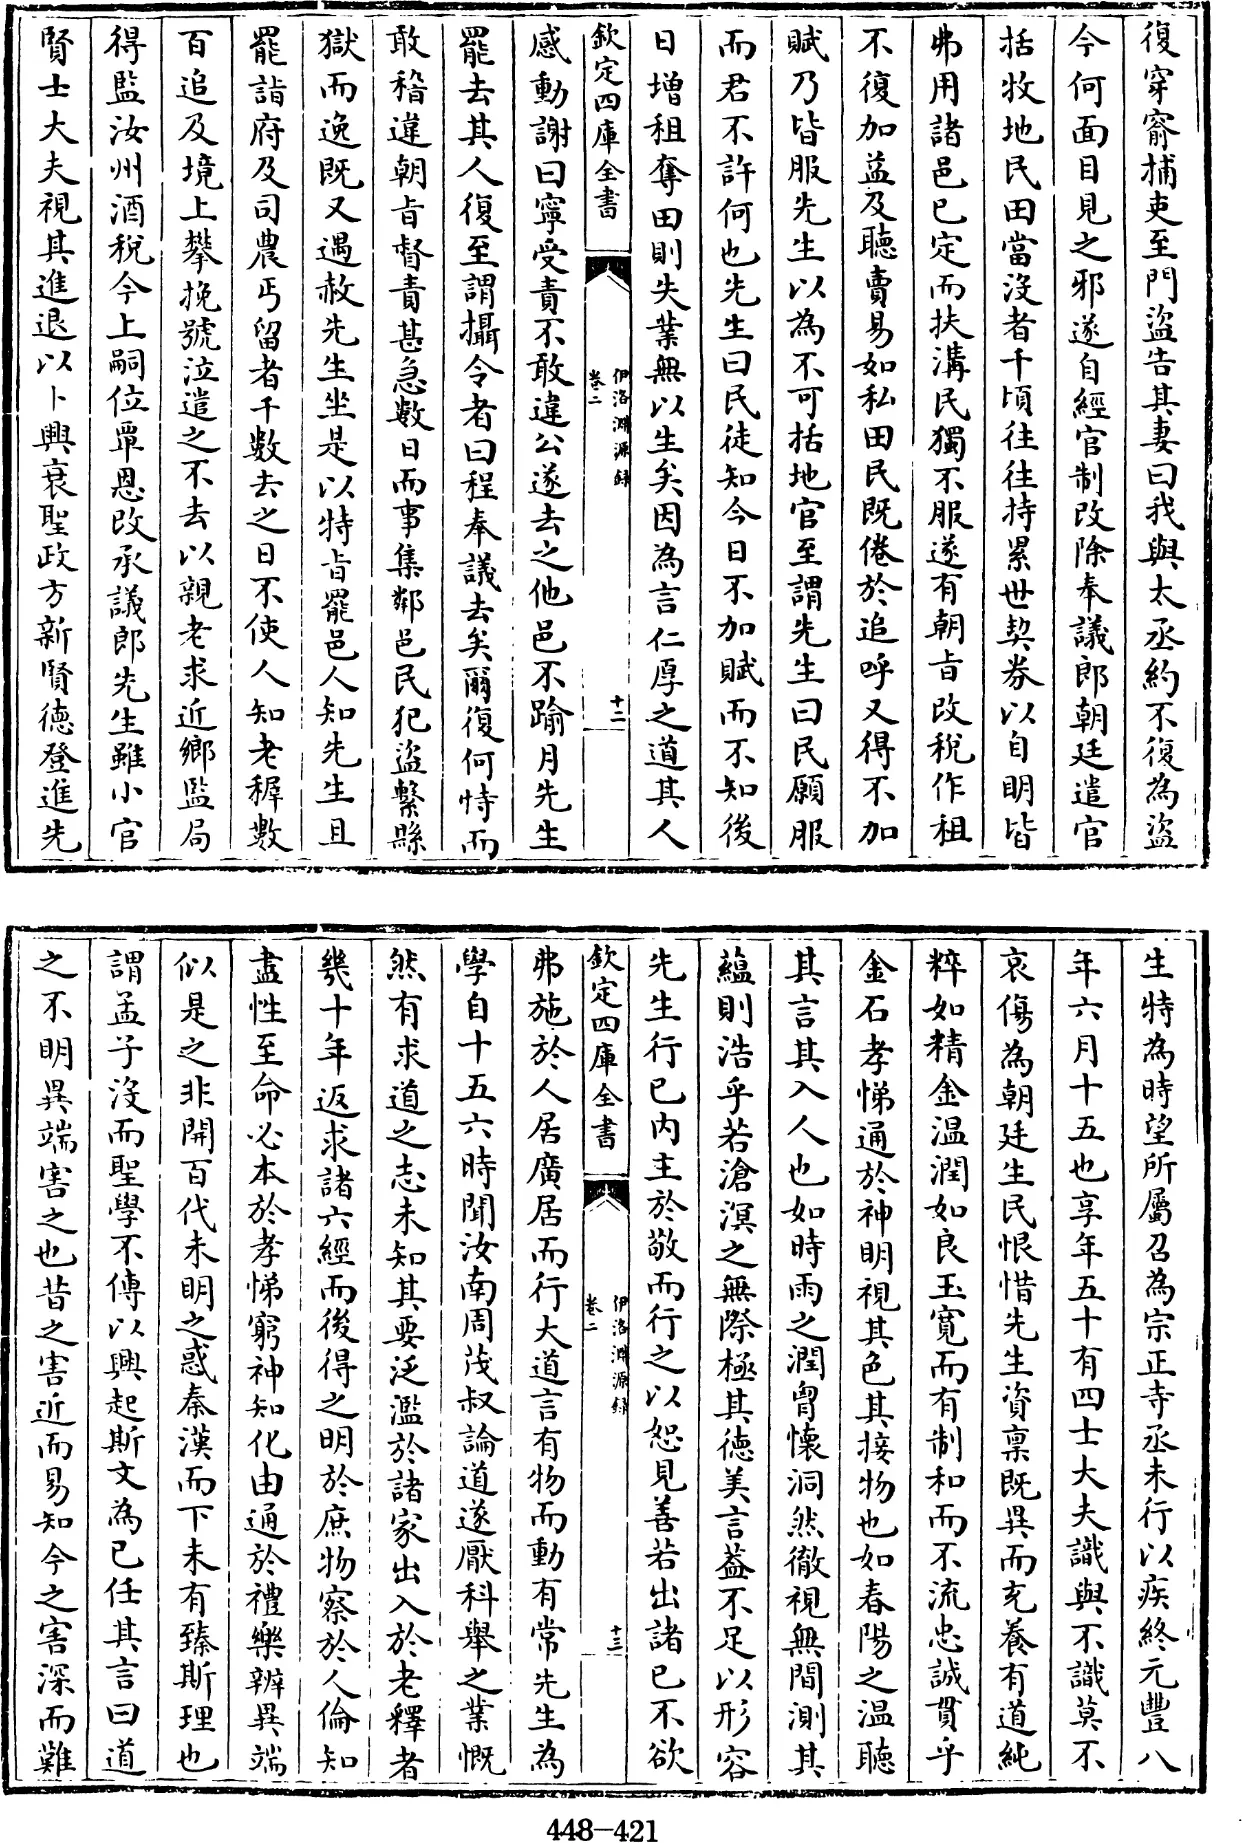 復穿窬捕吏至門盜告其妻曰我與太丞約不復為盜
今何面目見之邪遂自經官制改除奉議郎朝廷遣官
括牧地民田當沒者千頃往往持累世契券以自明皆
弗用諸邑已定而扶溝民獨不服遂有朝旨改稅作租
不復加益及聽賣易如私田民既倦於追呼又得不加
賦乃皆服先生以為不可括地官至謂先生曰民願服
而君不許何也先生曰民徒知今日不加賦而不知後
日增租奪田則失業無以生矣因為言仁厚之道其人
欽定四庫全書
伊洛淵源錄
卷二
十二
感動謝曰寧受責不敢違公遂去之他邑不踰月先生
罷去其人復至謂攝令者曰程奉議去矣爾復何恃而
敢稽違朝旨督責甚急數日而事集鄰邑民犯盜繫縣
獄而逸既又遇赦先生坐是以特旨罷邑人知先生且
罷詣府及司農丐留者千數去之日不使人知老稺數
百追及境上攀挽號泣遣之不去以親老求近鄉監局
得監汝州酒稅今上嗣位覃恩改承議郎先生雖小官
賢士大夫視其進退以卜興衰聖政方新賢德登進先
生特為時望所屬召為宗正寺丞未行以疾終元豐八
年六月十五也享年五十有四士大夫識與不識莫不
哀傷為朝廷生民恨惜先生資稟既異而充養有道純
粹如精金溫潤如良玉寬而有制和而不流忠誠貫乎
金石孝悌通於神明視其色其接物也如春陽之溫聽
其言其入人也如時雨之潤胷懷洞然徹視無間測其
蘊則浩乎若滄溟之無際極其德美言葢不足以形容
先生行己內主於敬而行之以恕見善若出諸己不欲
欽定四庫全書
伊洛淵源錄
卷二
十三
弗施於人居廣居而行大道言有物而動有常先生為
學自十五六時聞汝南周茂叔論道遂厭科舉之業慨
然有求道之志未知其要泛濫於諸家出入於老釋者
幾十年返求諸六經而後得之明於庶物察於人倫知
盡性至命必本於孝悌窮神知化由通於禮樂辨異端
似是之非開百代未明之惑秦漢而下未有臻斯理也
謂孟子沒而聖學不傳以興起斯文為己任其言曰道
之不明異端害之也昔之害近而易知今之害深而難
448-421